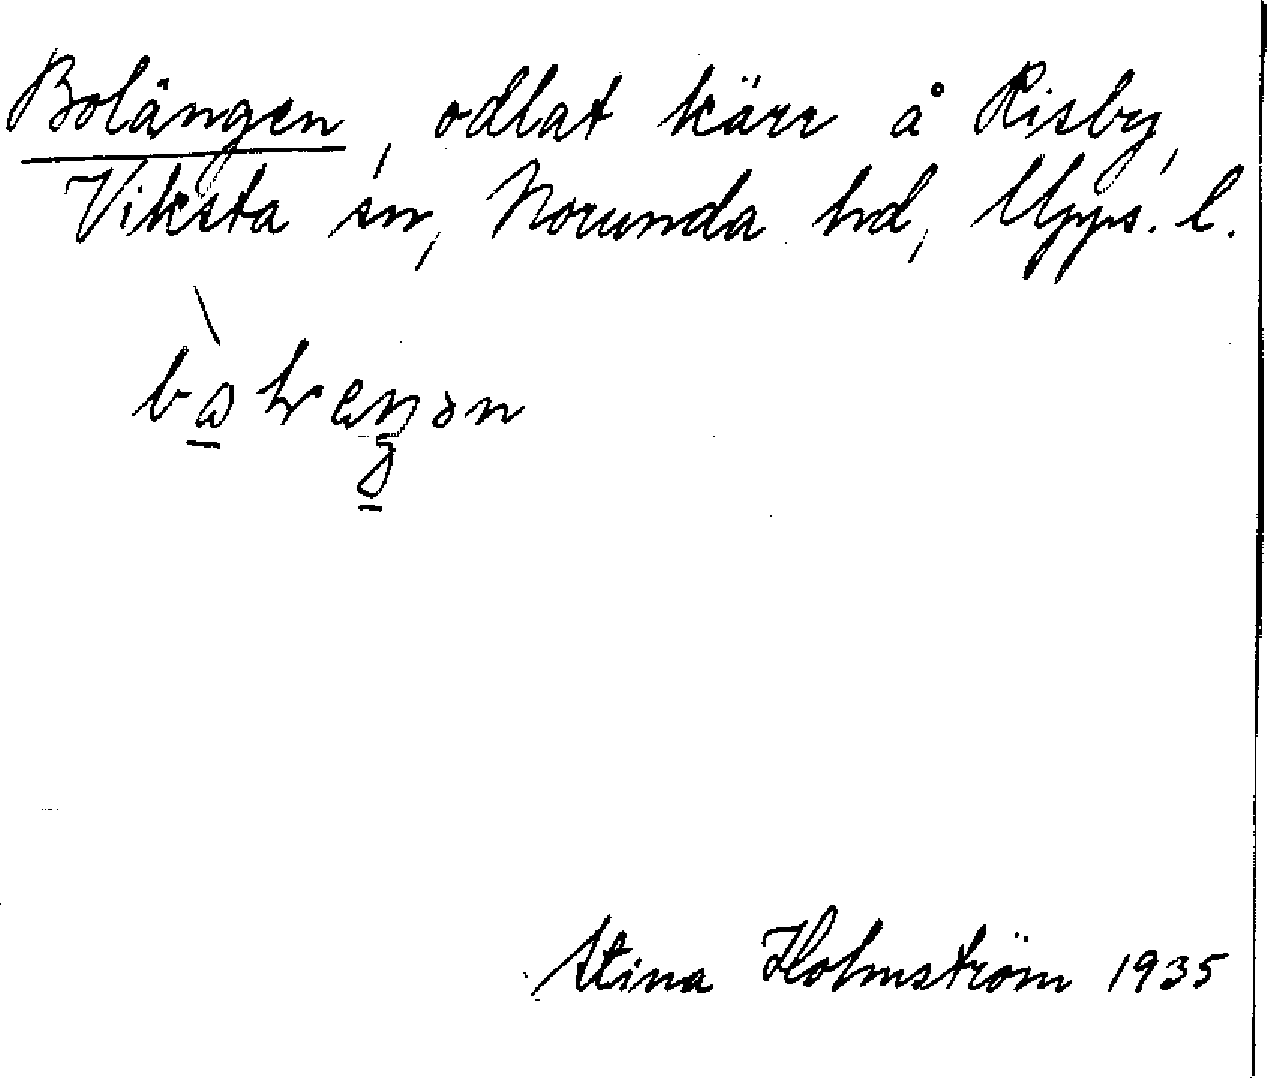 Bolängen, odlat kärr å Risby,
Viksta sn, Norunda hd, Upps. l.
Stina Holmström 1935